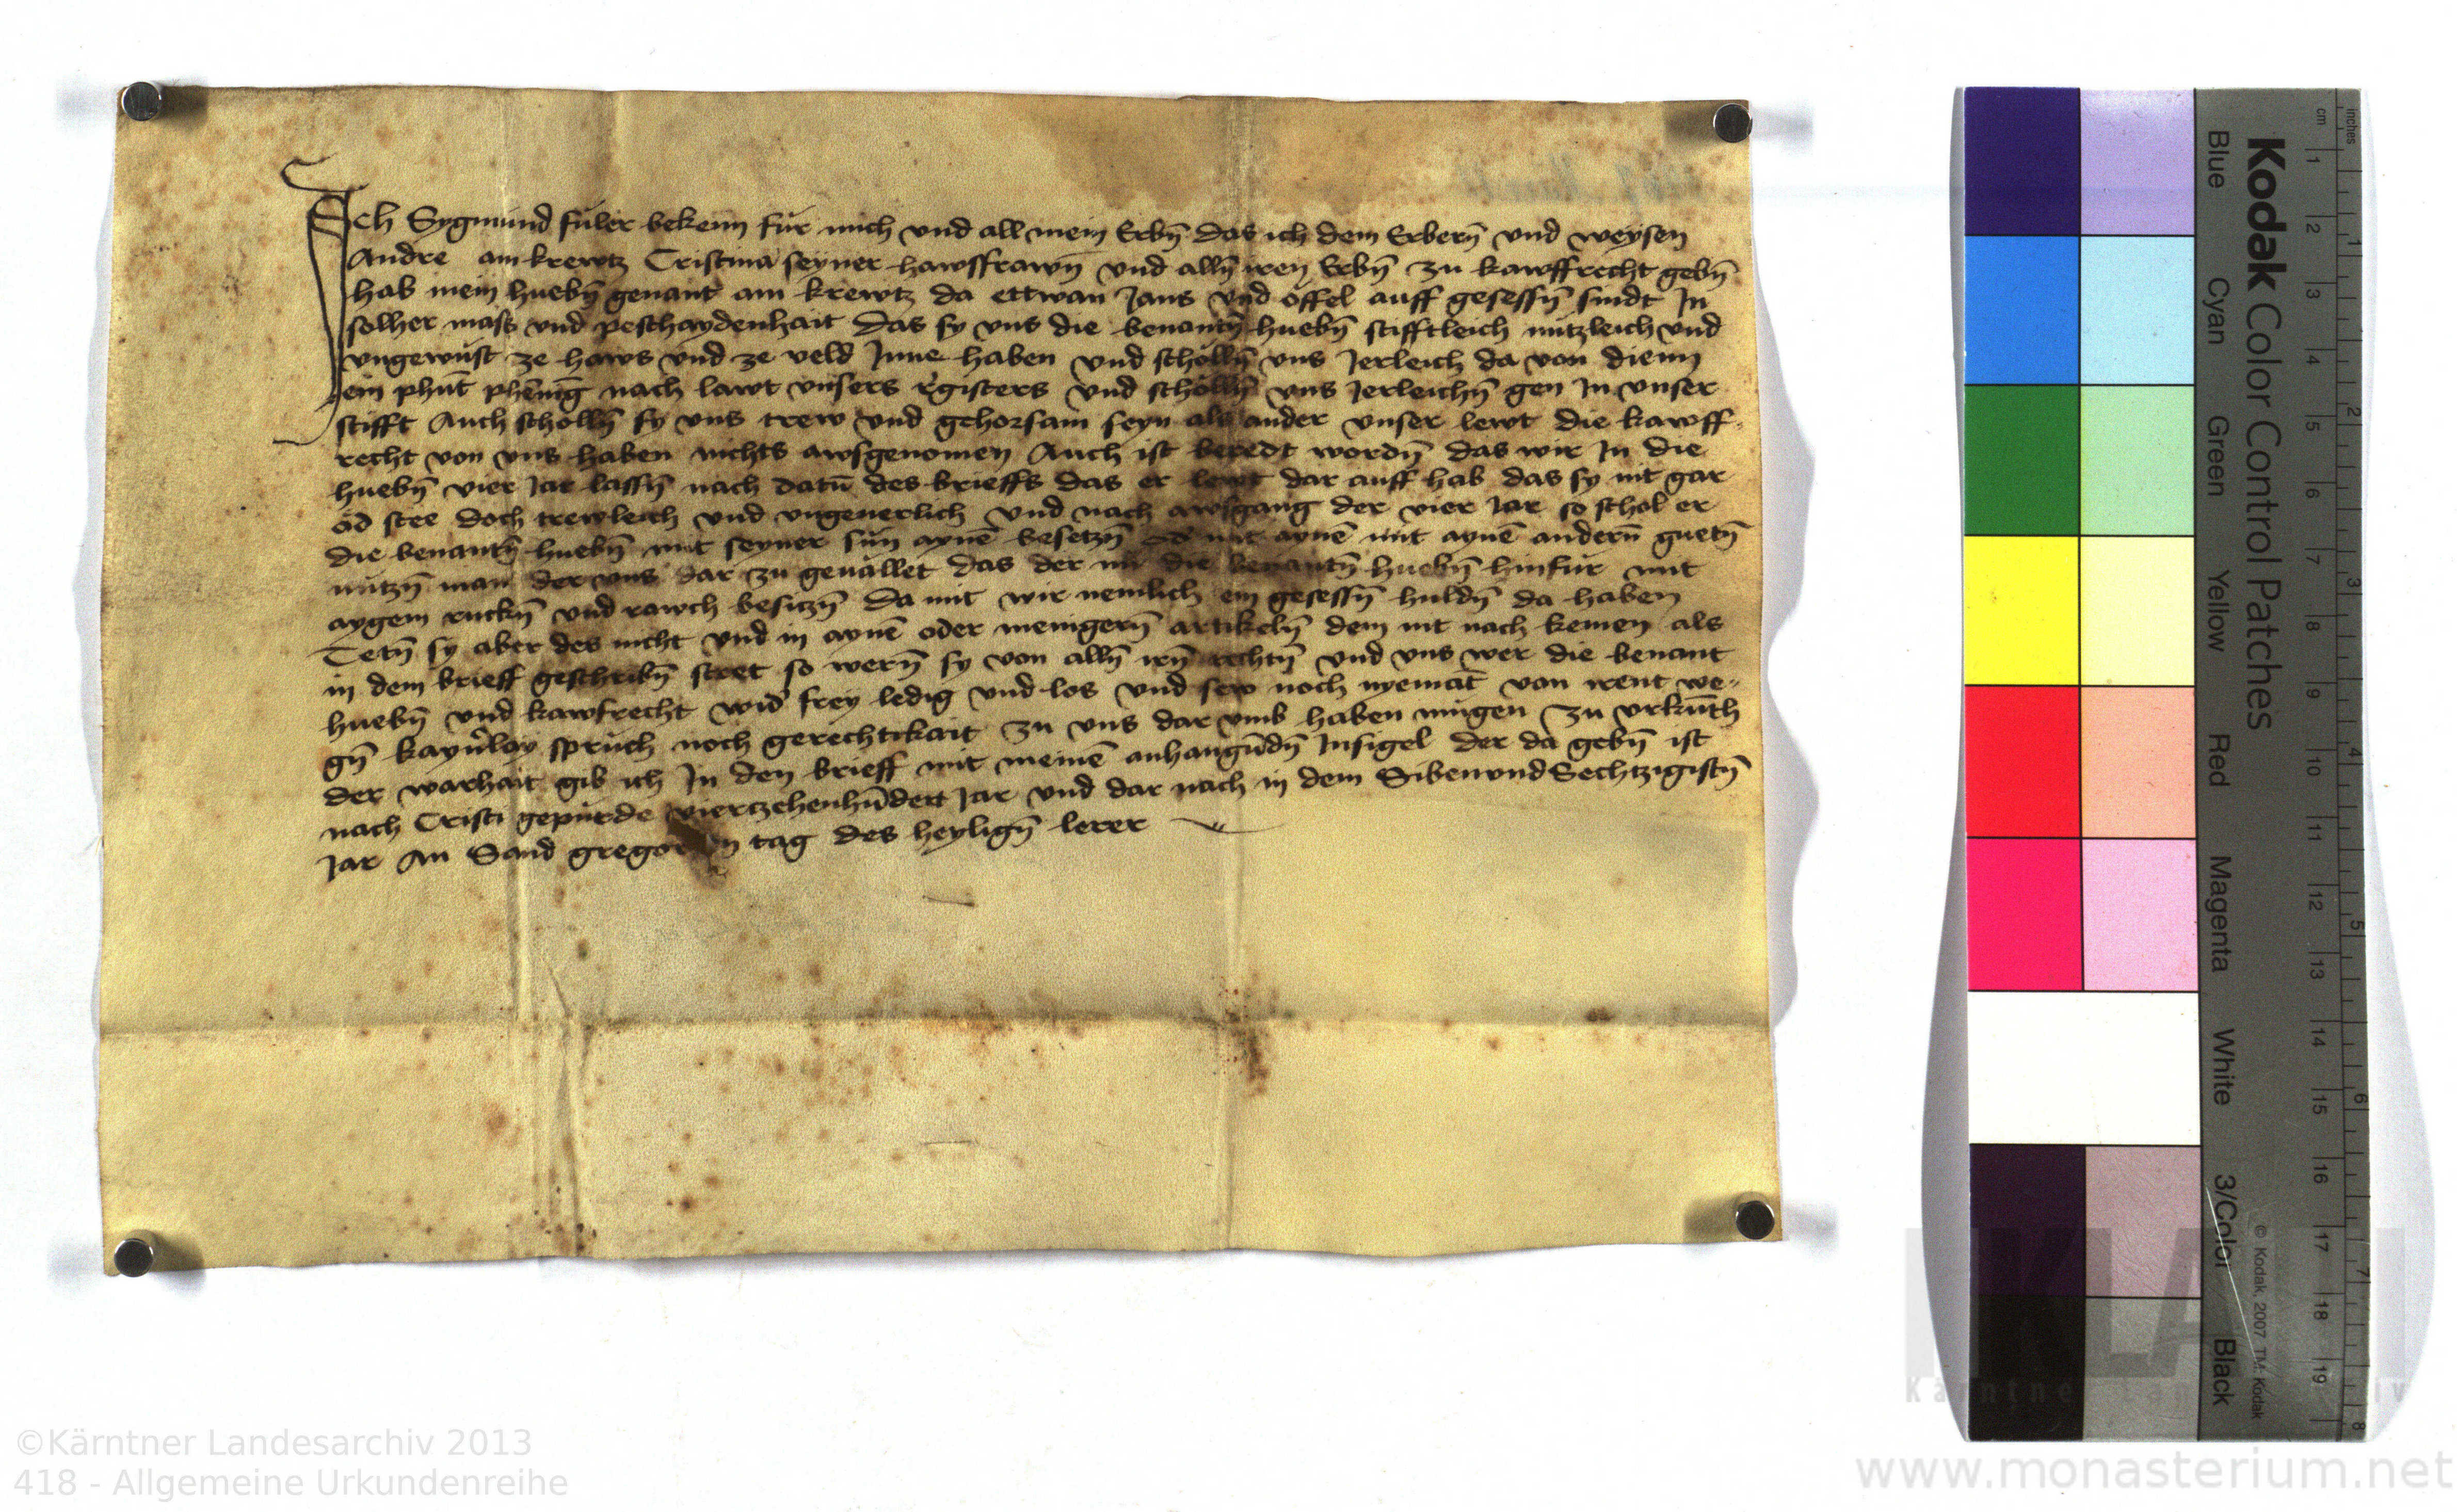 Ich Sygmund fuler bekenn fur mich vnd all mein Erbn̄ das ich dem Erbern̄ vnd weysen
Andre am krewtz Cristina seyner hawsfrawn̄ vnd alln̄ iren Erbn̄ zu kawffrecht gebn̄
hab mein huebn̄ genant am krewtz da ettwan Jans vnd offel auff gesessn̄ sindt In
solher mass vnd peschaydenhait das sy vns die benantn̄ huebn̄ stifftleich nutzleich vnd
vngewust ze haws vnd ze veld Inne haben vnd scholln̄ vns Jerleich da von dienn
ein phūt phēnīg nach lawt vnsers r̓gisters vnd scholln̄ vns Jerleichn̄ gen In vnser
stifft Auch scholln̄ sy vns trew vnd gehorsam seyn als ander vnser lewt die kawff-
recht von vns haben nichts awsgenomen Auch ist beredt wordn̄ das wir In die
huebn̄ vier Jar lassn̄ nach datū des brieffs das er lewt dar auff hab das sy nit gar
od stee doch trewleich vnd vngeuerlich vnd nach awsgang der vier Jar so schol er
die benantn̄ huebn̄ mit seyner sun aynē besetzn̄ od̓ mit aynē mit aynē andern̄ guetn̄
nutzn̄ man der vns dar zu geuallet das der die benantn̄ huebn̄ hinfur mit
aygem ruckn̄ vnd rawch besitzn̄ Da mit wir nemlich ein gesessn̄ huldn̄ da haben
Tetn̄ sy aber des nicht vnd in aynē oder menigern̄ artikeln̄ dem nit nach kemen als
in dem brieff geschribn̄ steet so wern̄ sy von alln̄ irn̄ rechtn̄ vnd vns wer die benant
huebn̄ vnd kawfrecht wid̓ frey ledig vnd los vnd sew noch nyemāt von irent we-
gn̄ kayn̓lay spruch noch gerechtikait zu vns dar vmb haben mugen Zu vrkūth
der warhait gib ich In den brieff mit meinē anhangūdn̄ Insigel der da gebn̄ ist
nach Cristi gepurde vierczehenhūdert Jar vnd dar nach in dem Sibenvnd Sechtzigistn̄
Jar An Sand tag des heylign̄ lerer
Kodak Color Control Patches
Blue Cyan Green Yellow Red Magenta White 3/Color Black
© Kodak, 2007 TM: Kodak
cm 1 2 3 4 5 6 7 8 9 10 11 12 13 14 15 16 17 18 19
inches 1 2 3 4 5 6 7 8
KLA
Kärntner Landesarchiv
©Kärntner Landesarchiv 2013
418 - Allgemeine Urkundenreihe
www.monasterium.net